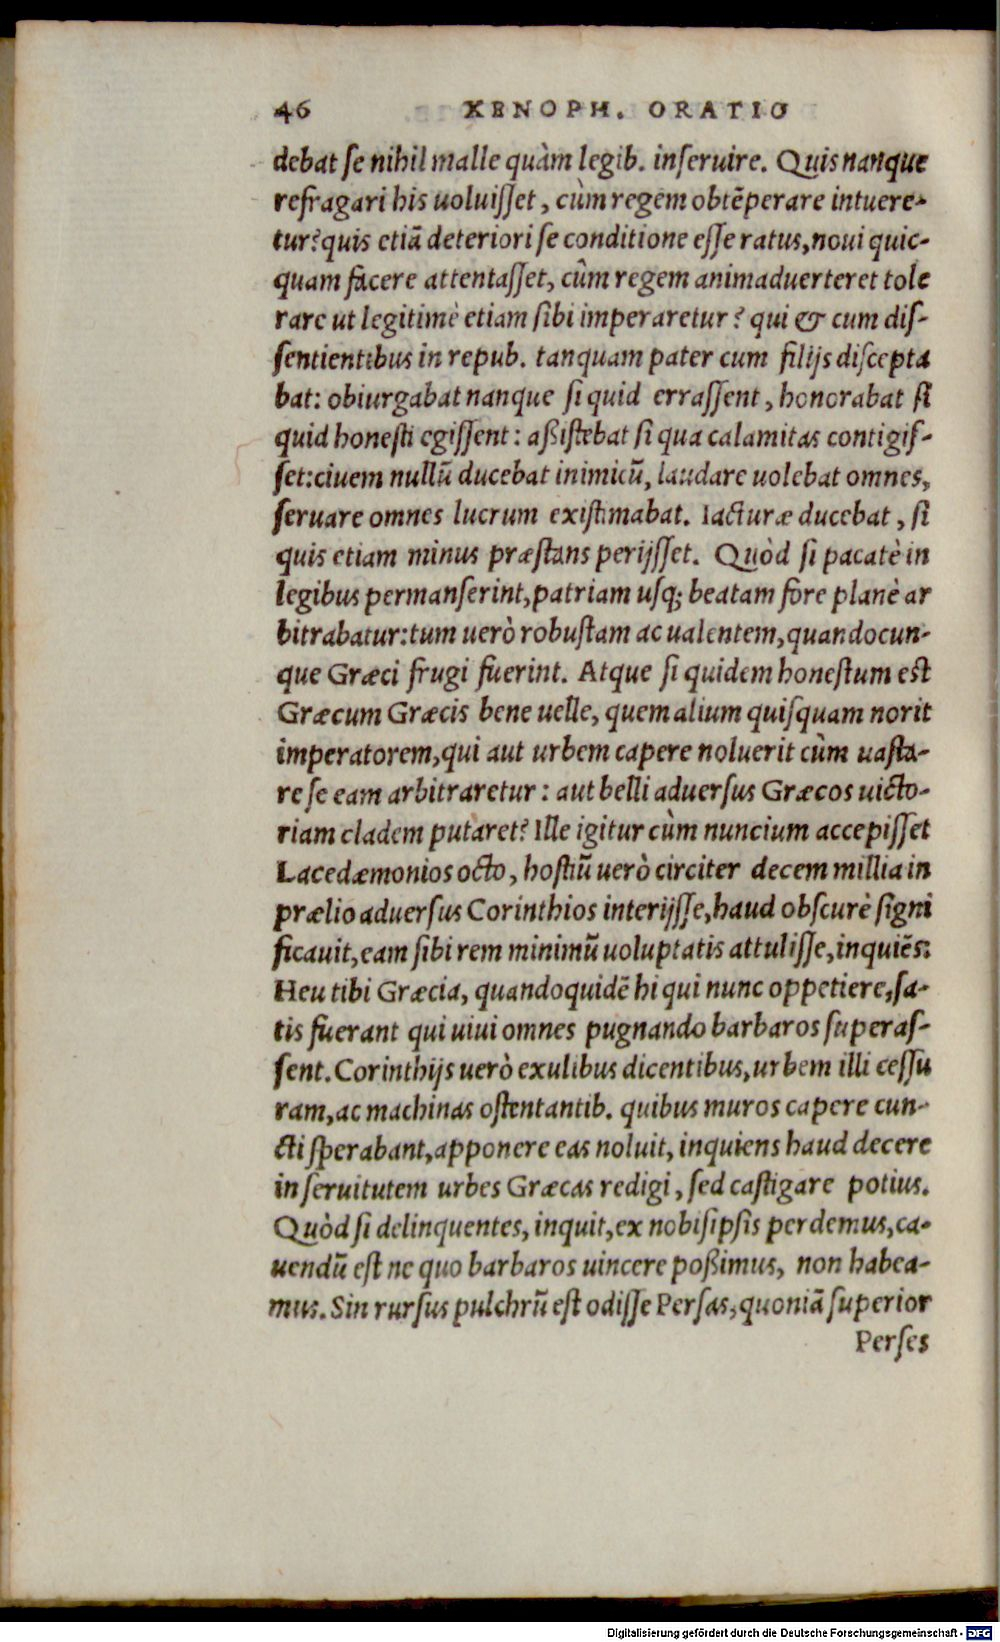 46 XENOPH. ORATIO
debat se nihil malle quàm legib. inseruire. Quis nanque
refragari his uoluisset, cùm regem obtēperare intuere-
tur? quis etiā deteriori se conditione esse ratus, noui quic-
quam facere attentasset, cùm regem animaduerteret tole
rare ut legitimè etiam sibi imperaretur? qui & cum dis-
sentientibus in repub. tanquam pater cum filijs discepta
bat: obiurgabat nanque si quid errassent, honorabat si
quid honesti egissent: aßistebat si qua calamitas contigis-
set: ciuem nullū ducebat inimicū, laudare uolebat omnes,
seruare omnes lucrum existimabat. Iacturæ ducebat, si
quis etiam minus præstans perijsset. Quòd si pacatè in
legibus permanserint, patriam usq; beatam fore planè ar
bitrabatur: tum uerò robustam ac ualentem, quandocun-
que Græci frugi fuerint. Atque si quidem honestum est
Græcum Græcis bene uelle, quem alium quisquam norit
imperatorem, qui aut urbem capere noluerit cùm uasta-
re se eam arbitraretur: aut belli aduersus Græcos uicto-
riam cladem putaret? Ille igitur cùm nuncium accepisset
Lacedæmonios octo, hostiū uerò circiter decem millia in
prælio aduersus Corinthios interijsse, haud obscurè signi
ficauit, eam sibi rem minimū uoluptatis attulisse, inquiēs:
Heu tibi Græcia, quandoquidē hi qui nunc oppetiere, sa-
tis fuerant qui uiui omnes pugnando barbaros superas-
sent. Corinthijs uerò exulibus dicentibus, urbem illi cessu
ram, ac machinas ostentantib. quibus muros capere cun-
cti sperabant, apponere eas noluit, inquiens haud decere
in seruitutem urbes Græcas redigi, sed castigare potius.
Quòd si delinquentes, inquit, ex nobisipsis perdemus, ca-
uendū est ne quo barbaros uincere poßimus, non habea-
mus. Sin rursus pulchrū est odisse Persas, quoniā superior
Perses
Digitalisierung gefördert durch die Deutsche Forschungsgemeinschaft - DFG